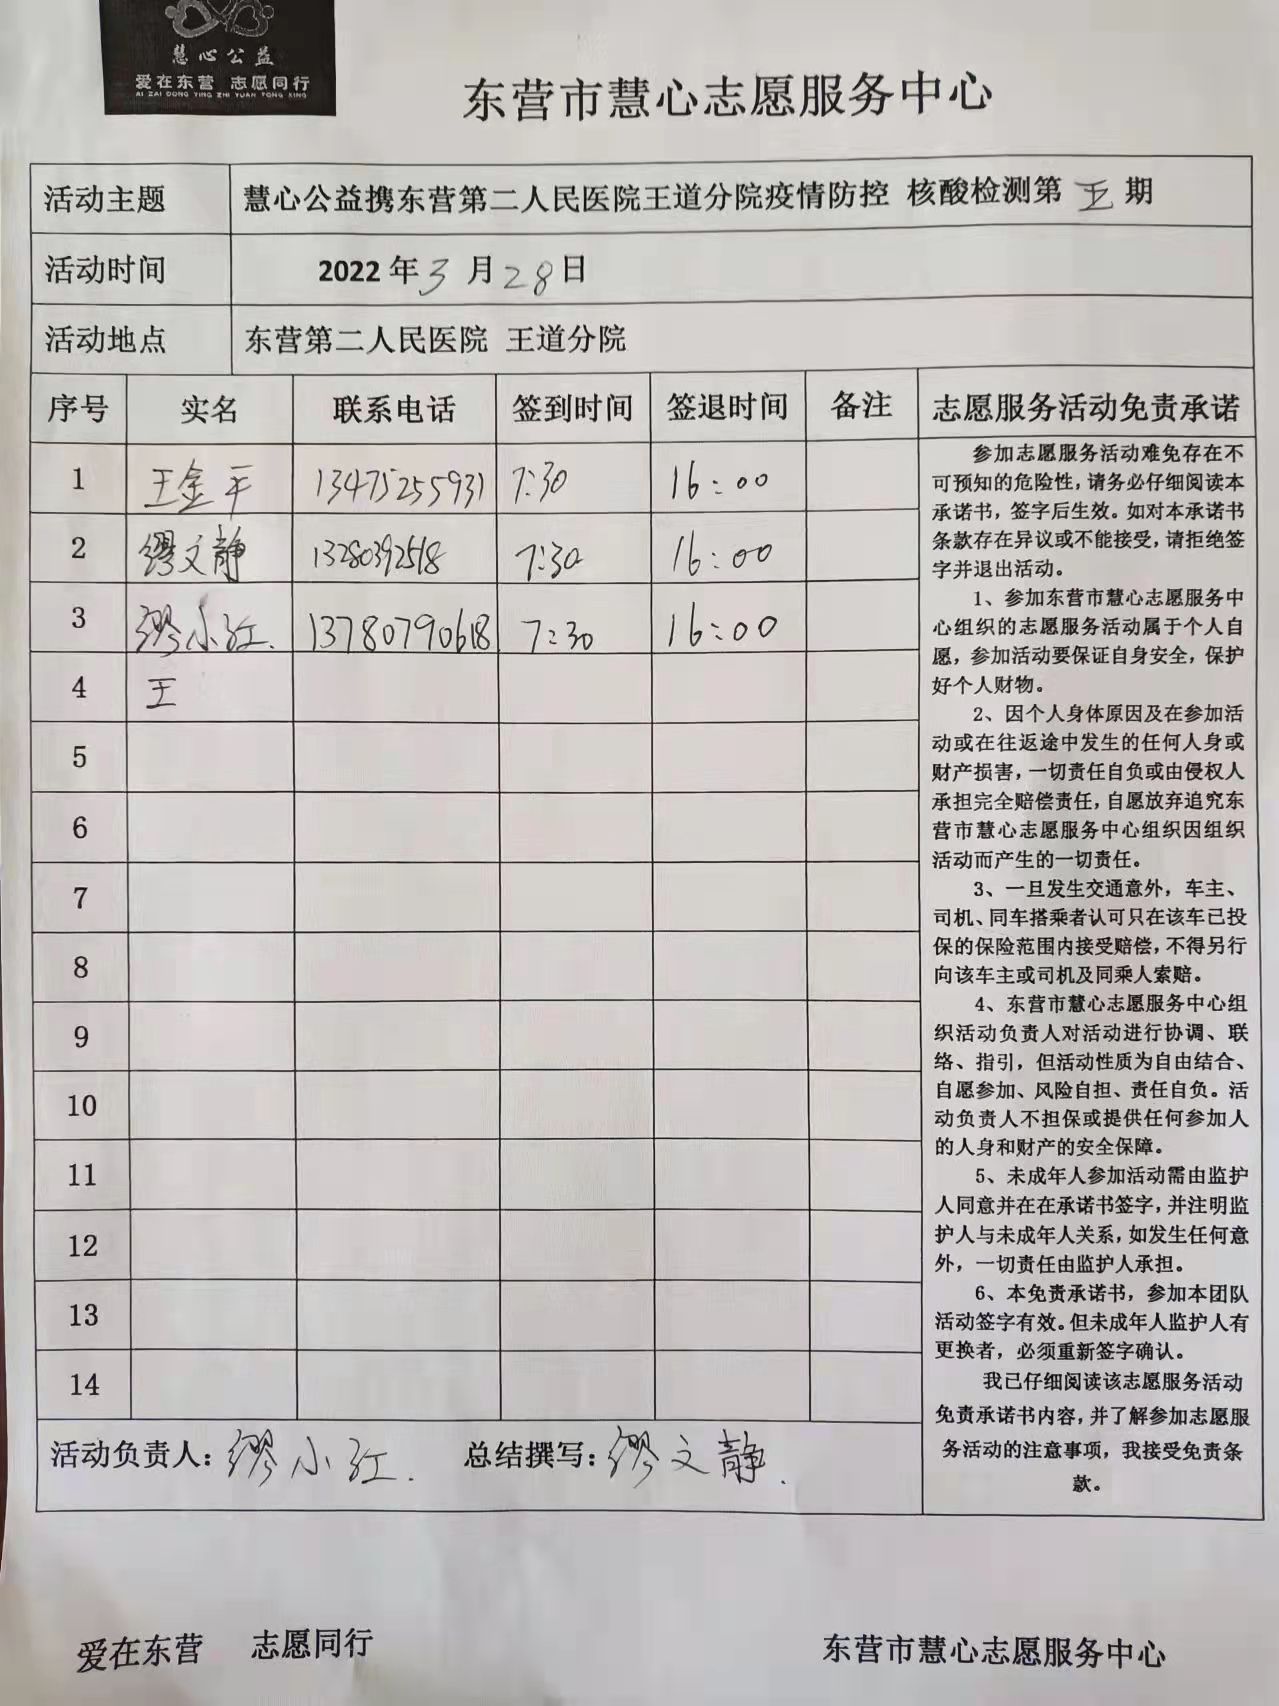 慧心公益
爱在东营 志愿同行
AI ZAI DONG YING ZHI YUAN TONG XING
东营市慧心志愿服务中心
活动主题 慧心公益携东营第二人民医院王道分院疫情防控 核酸检测第 五 期
活动时间 2022年3月28日
活动地点 东营第二人民医院 王道分院
序号 实名 联系电话 签到时间 签退时间 备注
1 王金平 13475255931 7:30 16:00
2 缪文静 13280392518 7:30 16:00
3 缪小红. 13780790618 7:30 16:00
4 王
5
6
7
8
9
10
11
12
13
14
志愿服务活动免责承诺
参加志愿服务活动难免存在不
可预知的危险性,请务必仔细阅读本
承诺书,签字后生效。如对本承诺书
条款存在异议或不能接受,请拒绝签
字并退出活动。
1、参加东营市慧心志愿服务中
心组织的志愿服务活动属于个人自
愿,参加活动要保证自身安全,保护
好个人财物。
2、因个人身体原因及在参加活
动或在往返途中发生的任何人身或
财产损害,一切责任自负或由侵权人
承担完全赔偿责任,自愿放弃追究东
营市慧心志愿服务中心组织因组织
活动而产生的一切责任。
3、一旦发生交通意外,车主、
司机、同车搭乘者认可只在该车已投
保的保险范围内接受赔偿,不得另行
向该车主或司机及同乘人索赔。
4、东营市慧心志愿服务中心组
织活动负责人对活动进行协调、联
络、指引,但活动性质为自由结合、
自愿参加、风险自担、责任自负。活
动负责人不担保或提供任何参加人
的人身和财产的安全保障。
5、未成年人参加活动需由监护
人同意并在在承诺书签字,并注明监
护人与未成年人关系,如发生任何意
外,一切责任由监护人承担。
6、本免责承诺书,参加本团队
活动签字有效。但未成年人监护人有
更换者,必须重新签字确认。
我已仔细阅读该志愿服务活动
免责承诺书内容,并了解参加志愿服
务活动的注意事项,我接受免责条
款。
活动负责人:缪小红. 总结撰写:缪文静.
爱在东营 志愿同行 东营市慧心志愿服务中心